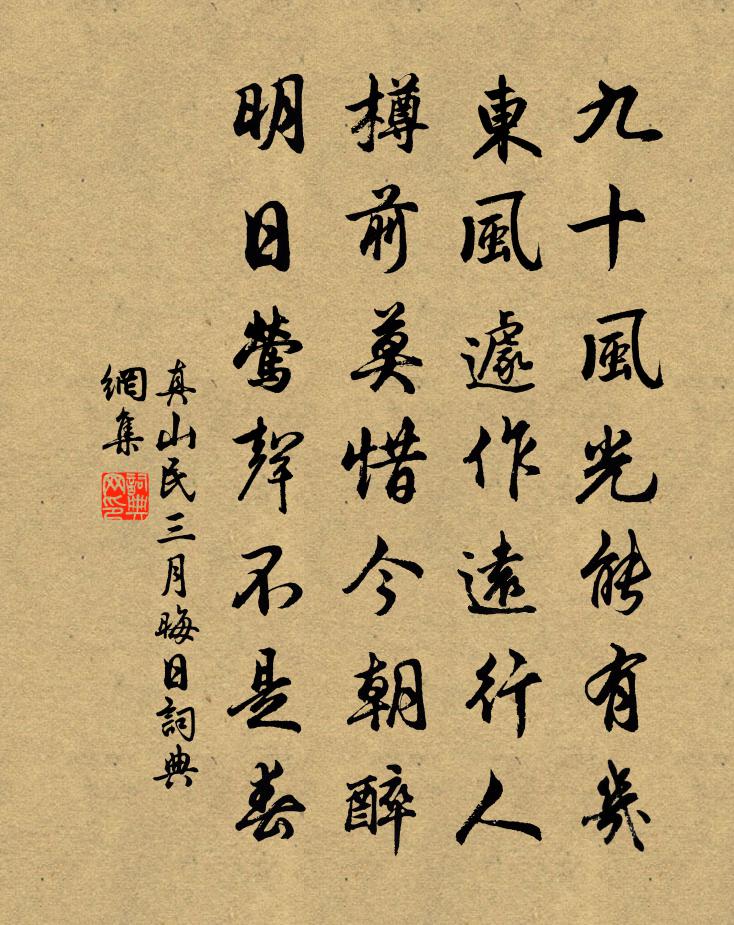 九十風光能有幾
東風遽作遠行人
樽前莫惜今朝醉
明日鶯聲不是春
真山民三月晦日詞典
網集
詞典
网印